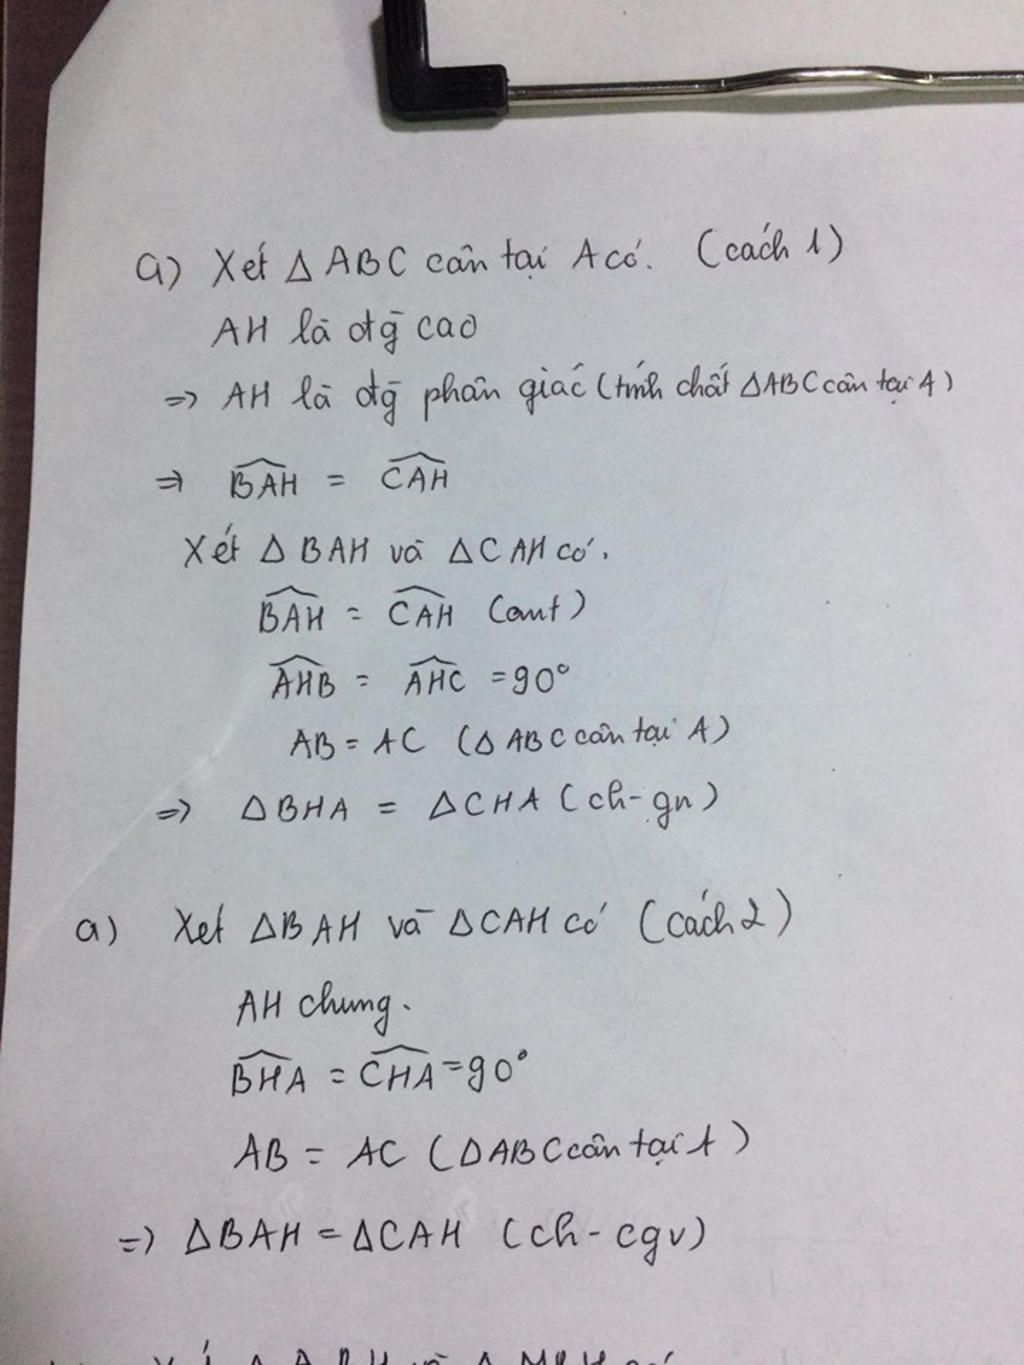 a) Xét Δ ABC cân tại A có. (cách 1)
AH là đg cao
=> AH là đg phân giác (tính chất ΔABC cân tại A)
=> \widehat{BAH} = \widehat{CAH}
Xét Δ BAH và ΔCAH có.
\widehat{BAH} = \widehat{CAH} (cmt)
\widehat{AHB} = \widehat{AHC} = 90°
AB = AC (Δ ABC cân tại A)
=> ΔBHA = ΔCHA (ch-gn)
a) Xét ΔBAH và ΔCAH có (cách 2)
AH chung.
\widehat{BHA} = \widehat{CHA} = 90°
AB = AC (ΔABC cân tại A)
=> ΔBAH = ΔCAH (ch-cgv)